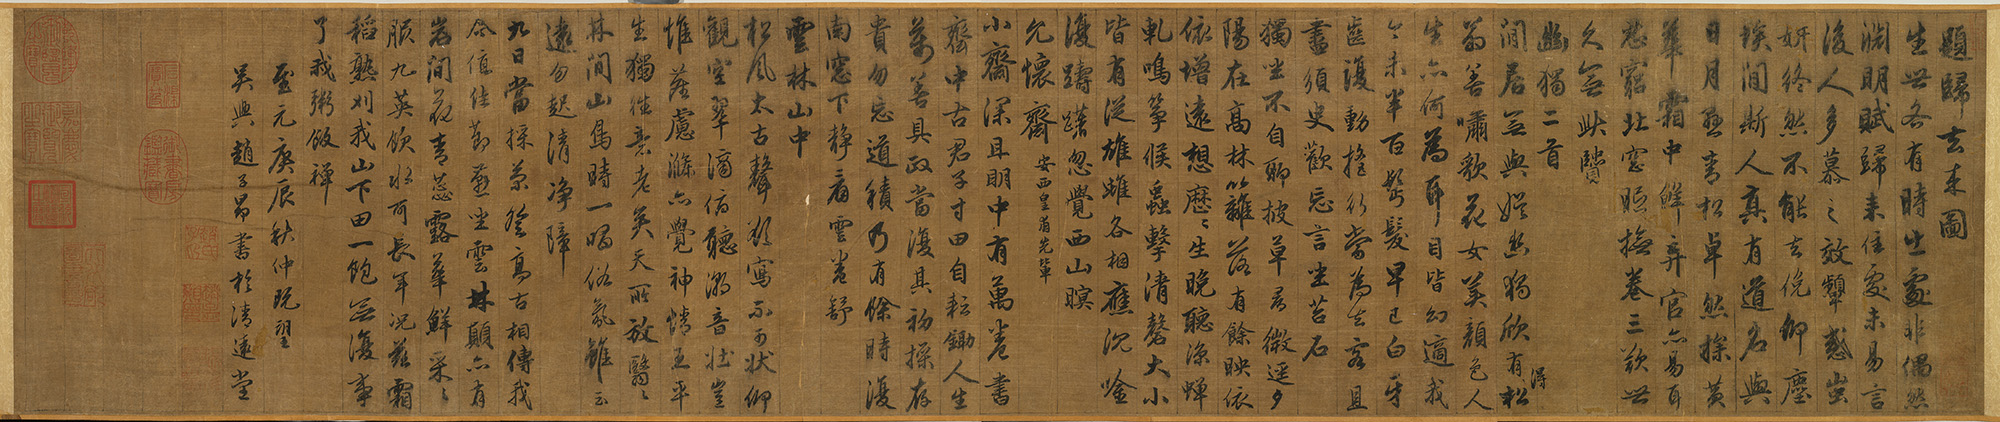 題歸去來圖
生世各有時出處非偶然
淵明賦歸來佳處未易言
後人多慕之效顰惑蚩
妍終然不能去俛仰塵
埃間斯人真有道名與
日月懸青松卓然操黃
華霜中鮮棄官亦易耳
忍窮北窓眠撫卷三歎世
久無此賢
幽獨二首
閒居無與娛幽獨欣有得松
翁善嘯歌花女美顏色人
生亦何為耳目皆幻適我
年未半百鬢髮早已白牙
齒復動搖行當為去客且
盡須臾歡忘言坐苔石
獨坐不自聊披草尋微逕夕
陽在高林籬落有餘映依
依墟遠想歷歷生晚聽涼蟬
軋鳴箏候蟲擊清磬大小
皆有從雄雌各相應沉吟
復躊躇忽覺西山暝
允懷齋 安西皇甫先輩
小齋深且明中有萬卷書
齋中古君子寸田自耘鋤人生
萬善具政當復其初操存
貴勿忘道積乃有餘時復
南窓下靜看雲卷舒
雲林山中
松風太古聲欲寫不可狀仰
觀空翠滴俯聽溺音壯豈
惟落慮滌亦覺神情王平
生獨往意老矣天所放翳翳
林間山鳥時一唱俗氣雖云
遠勿起清淨障
九日當採菊登高古相傳我
今值佳節燕坐雲林顛亦有
岩間花青蕊露華鮮采采
服九英飲水可長年況茲霜
稻熟刈我山下田一飽無復事
了我粥飯禪
至元庚辰秋仲既望
吳興趙子昂書於清遠堂